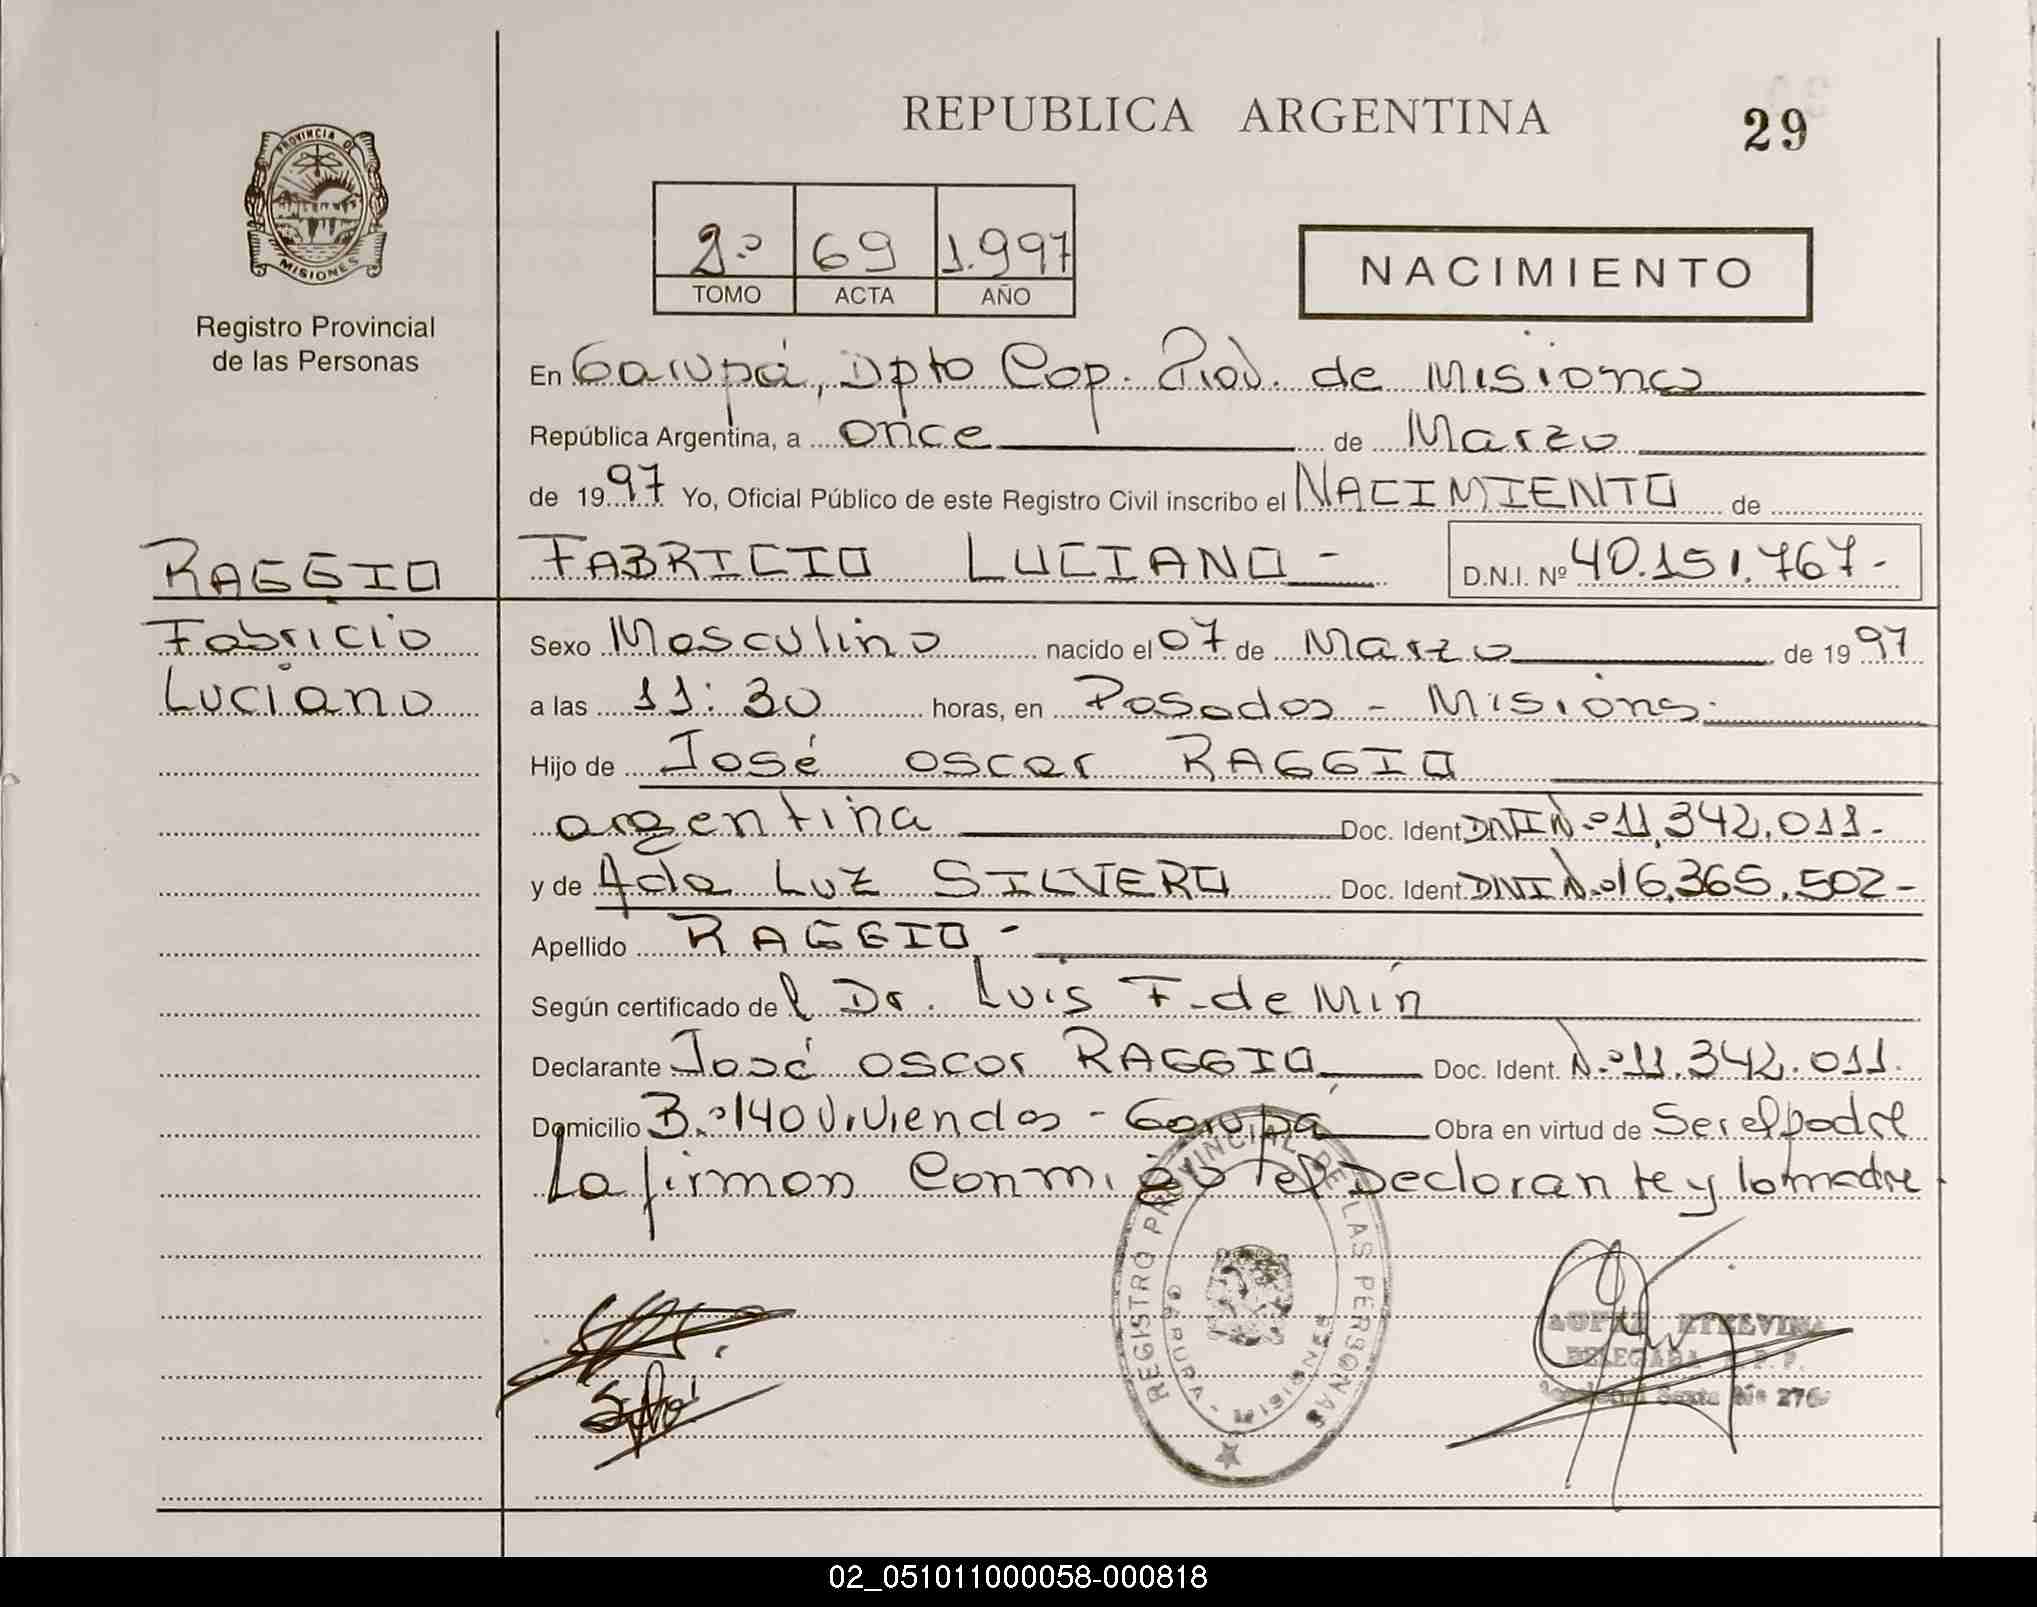 REPUBLICA ARGENTINA
29
PROVINCIA DE
MISIONES
Registro Provincial
de las Personas
2.º 69 1.997
TOMO ACTA AÑO
NACIMIENTO
En Garupá, Dpto Cap. Prov. de Misiones
República Argentina, a once de Marzo
de 1997 Yo, Oficial Público de este Registro Civil inscribo el NACIMIENTO de
RAGGIO
FABRICIO LUCIANO - D.N.I. Nº 40.151.767-
Fabricio
Luciano
Sexo Masculino nacido el 07 de Marzo de 1997
a las 11:30 horas, en Posadas - Misiones.
Hijo de José Oscar RAGGIO
argentina Doc. Ident DNI N.º 11.342.011-
y de Ada Luz SILVERO Doc. Ident. DNI N.º 16.365.502-
Apellido RAGGIO -
Según certificado del Dr. Luis F. de Min
Declarante José Oscar RAGGIO Doc. Ident. N.º 11.342.011.
Domicilio B.º 140 Viviendas - Garupá Obra en virtud de Ser el padre
La firman Conmigo el Declarante y la madre
REGISTRO PROVINCIAL DE LAS PERSONAS
GARUPA - MISIONES
ETELVINA
DELEGADA R. P. P.
Seccional Sexta Nº 276
02_051011000058-000818